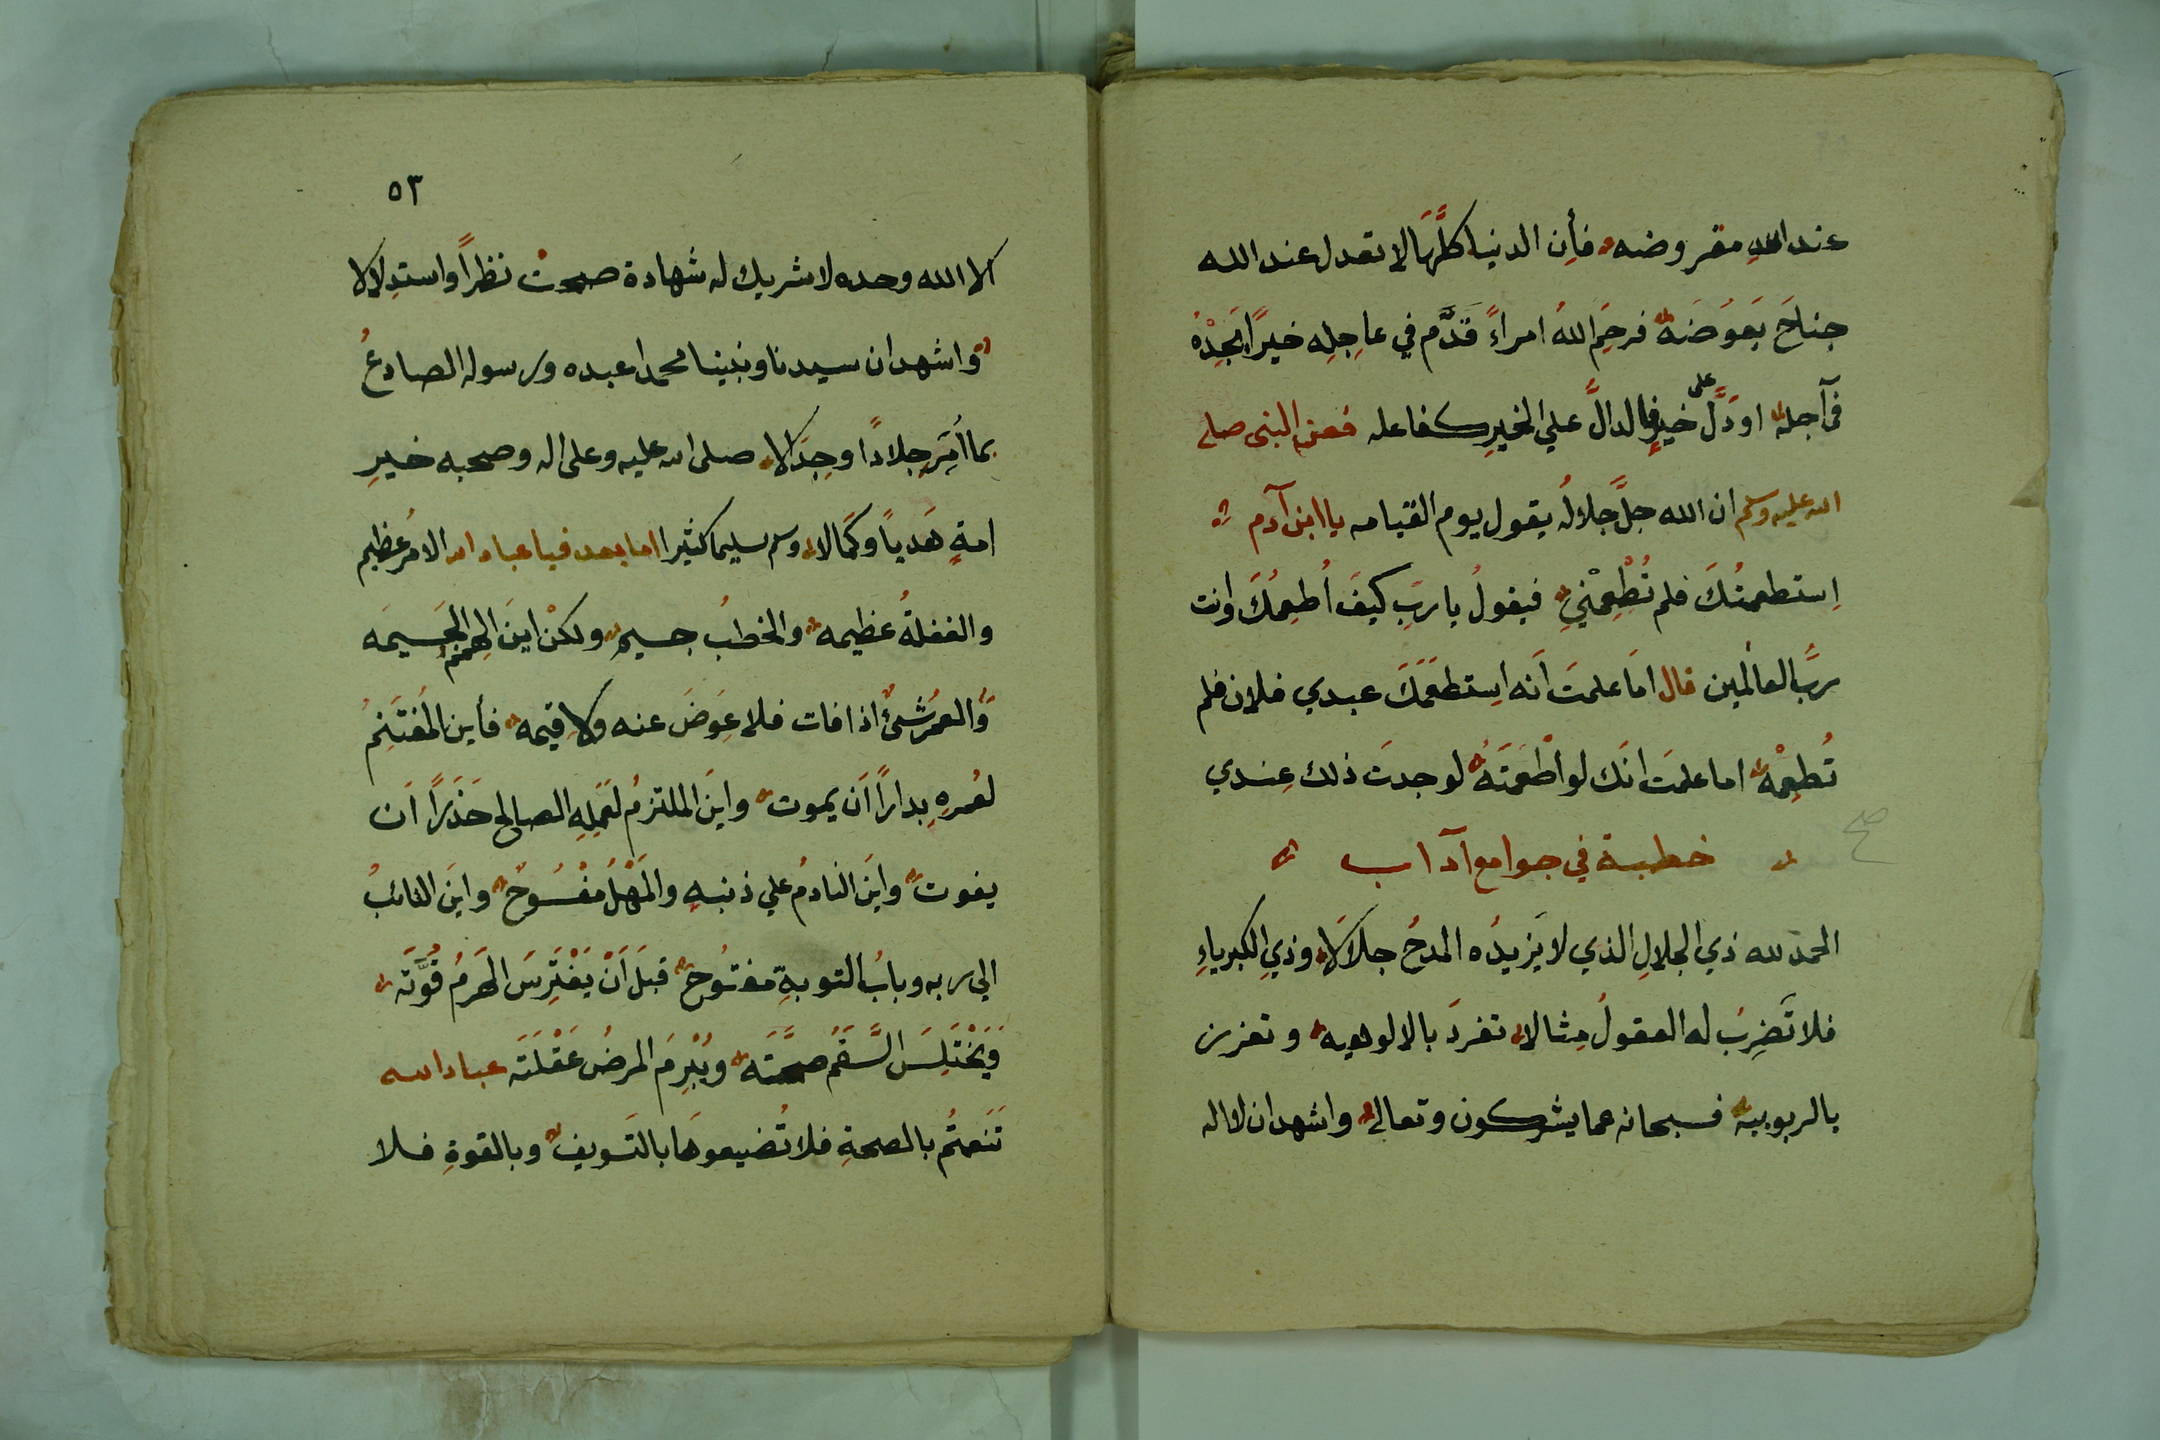 عند اللهِ مقروضه فأِن الدنيا كلَّهَا لا تعدل عند الله
جناحَ بَعوَضَة فرحِمَ اللهُ امراءً قدَّم في عاجِلِه خيرًا يَجِدْهُ
في آجله او دَلَّ على خيرٍ فالدالَّ علي الخيرِ كفاعله فعن النبى صلى
الله عليه وسلم ان الله جلَّ جَلالُه يقول يوم القيامه يا ابن آدم
اِستطعمتُكَ فلم تُطْعِمْنِي فيقولُ يا ربِّ كيفَ اُطعِمُكَ وانت
ربُّ العالمين قال امَا علمتَ اَنه اِستطعَمَكَ عبدي فلان فلم
تُطعِمْه اما علمتَ انَك لو اَطْعَمتَهُ لوجدتَ ذلك عِندي
خطبة في جوامع آداب
صح
الحمد لله ذي الجلالِ الذي لا يَزيدُه المدحُ جلاَلاَ وذيِ الكبرياءِ
فلا تَضرِبُ له العقولُ مِثالا تفردَ بالالوهيه وتعزز
بالربوبيه فسبحانه عما يشركون وتعالى واشهد ان لا اله
٥٣
الا الله وحده لا شريك له شهادة صحت نظراً واستدِلالا
واشهد ان سيدنا ونبينا محمدا عبده ورسوله الصادعُ
بما اُمِرَ جِلادًا وجِدَالا صلى الله عليه وعلى اله وصحبه خيرِ
امةٍ هَديًا وكمَالا وسلم تسليما كثيرا اما بعد فيا عباد الله الامرُ عظيم
والغفلةُ عظيمه والخطبُ جسيم ولكنْ اينَ الهِمَمُ الجَسيمَه
وَالعمرُ شئٌ اذا فات فلا عِوَضَ عنه ولا قيمه فأين المُغتَنِمُ
لعُمرِهِ بداراً اَن يموت واينَ الملتزمُ لعَمِلِهِ الصالح حَذَرًا اَن
يفوت واينَ النادمُ علي ذنبهِ والمَهْلُ مفْسُوحٌ واينَ التائبُ
الي ربه وبابُ التوبةِ مفتوُحٌ قبلَ اَنْ يَفْتَرِسَ الهَرمُ قُوَّتَه
وَيَخْتَلِسَ السَّقَمُ صِحَّتَه ويُبْرِمَ المرضُ عَقْلَتَه عباد الله
تَنَعمتُم بالصحةِ فلا تُضيعوهَا بالتَسويفِ وبالقوةِ فلا